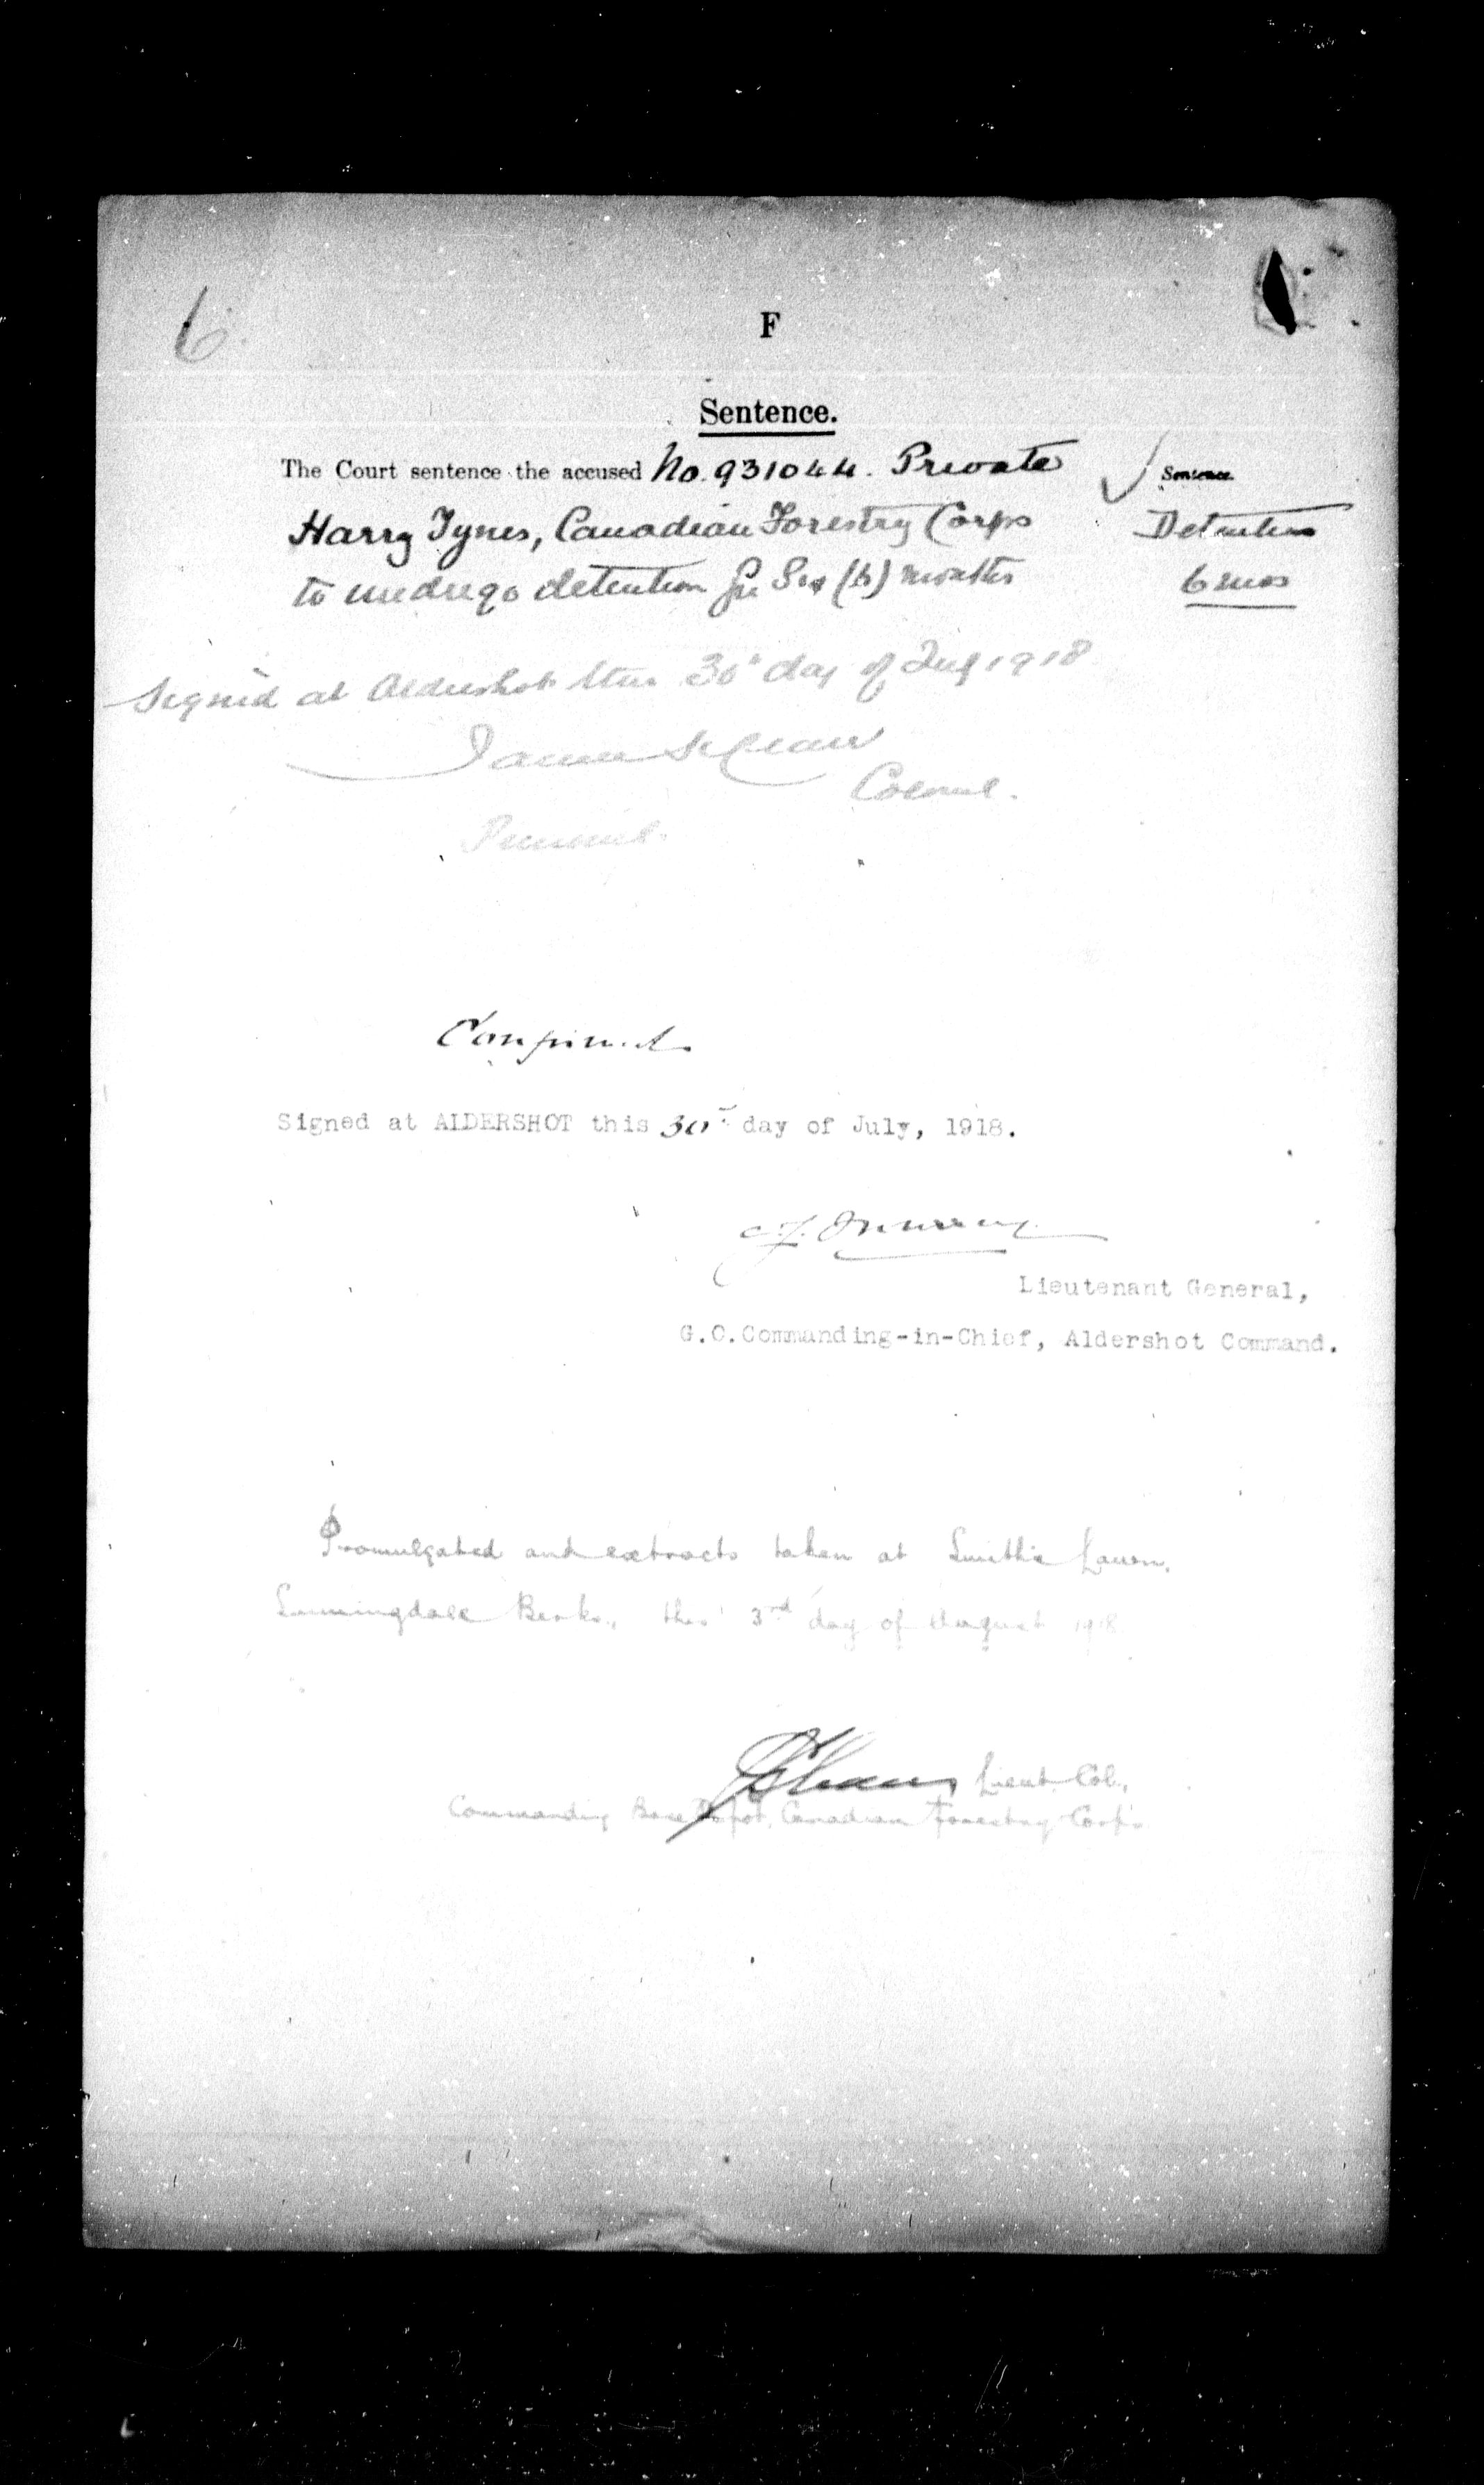 6.
F
Sentence.
The Court sentence the accused No. 931044. Private
Sentence.
Harry Tynes, Canadian Forestry Corps
Detention
to undergo detention for Six (6) months
6 mos
Signed at Aldershot this 30th day of July 1918
James
Colonel.
President.
Confirmed.
Signed at ALDERSHOT this 30th day of July, 1918.
Murray.
Lieutenant General,
G.O.Commanding-in-Chief, Aldershot Command.
Promulgated and extracts taken at Smith's Lawn,
Sunningdale Berks., this 3rd day of August 1918
Lieut. Col.,
Commanding Base Depot, Canadian Forestry Corps.